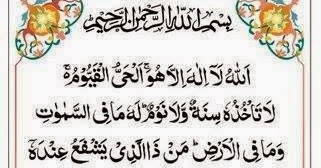 بِسْمِ اللّٰهِ الرَّحْمٰنِ الرَّحِيْمِ
اَللّٰهُ لَاۤ اِلٰهَ اِلَّا هُوَ ۚ اَلْحَىُّ الْقَيُّوْمُ ۚ۬
لَا تَاْخُذُهٗ سِنَةٌ وَّلَا نَوْمٌ ؕ لَهٗ مَا فِى السَّمٰوٰتِ
وَمَا فِى الْاَرْضِ ؕ مَنْ ذَا الَّذِىْ يَشْفَعُ عِنْدَهٗۤ